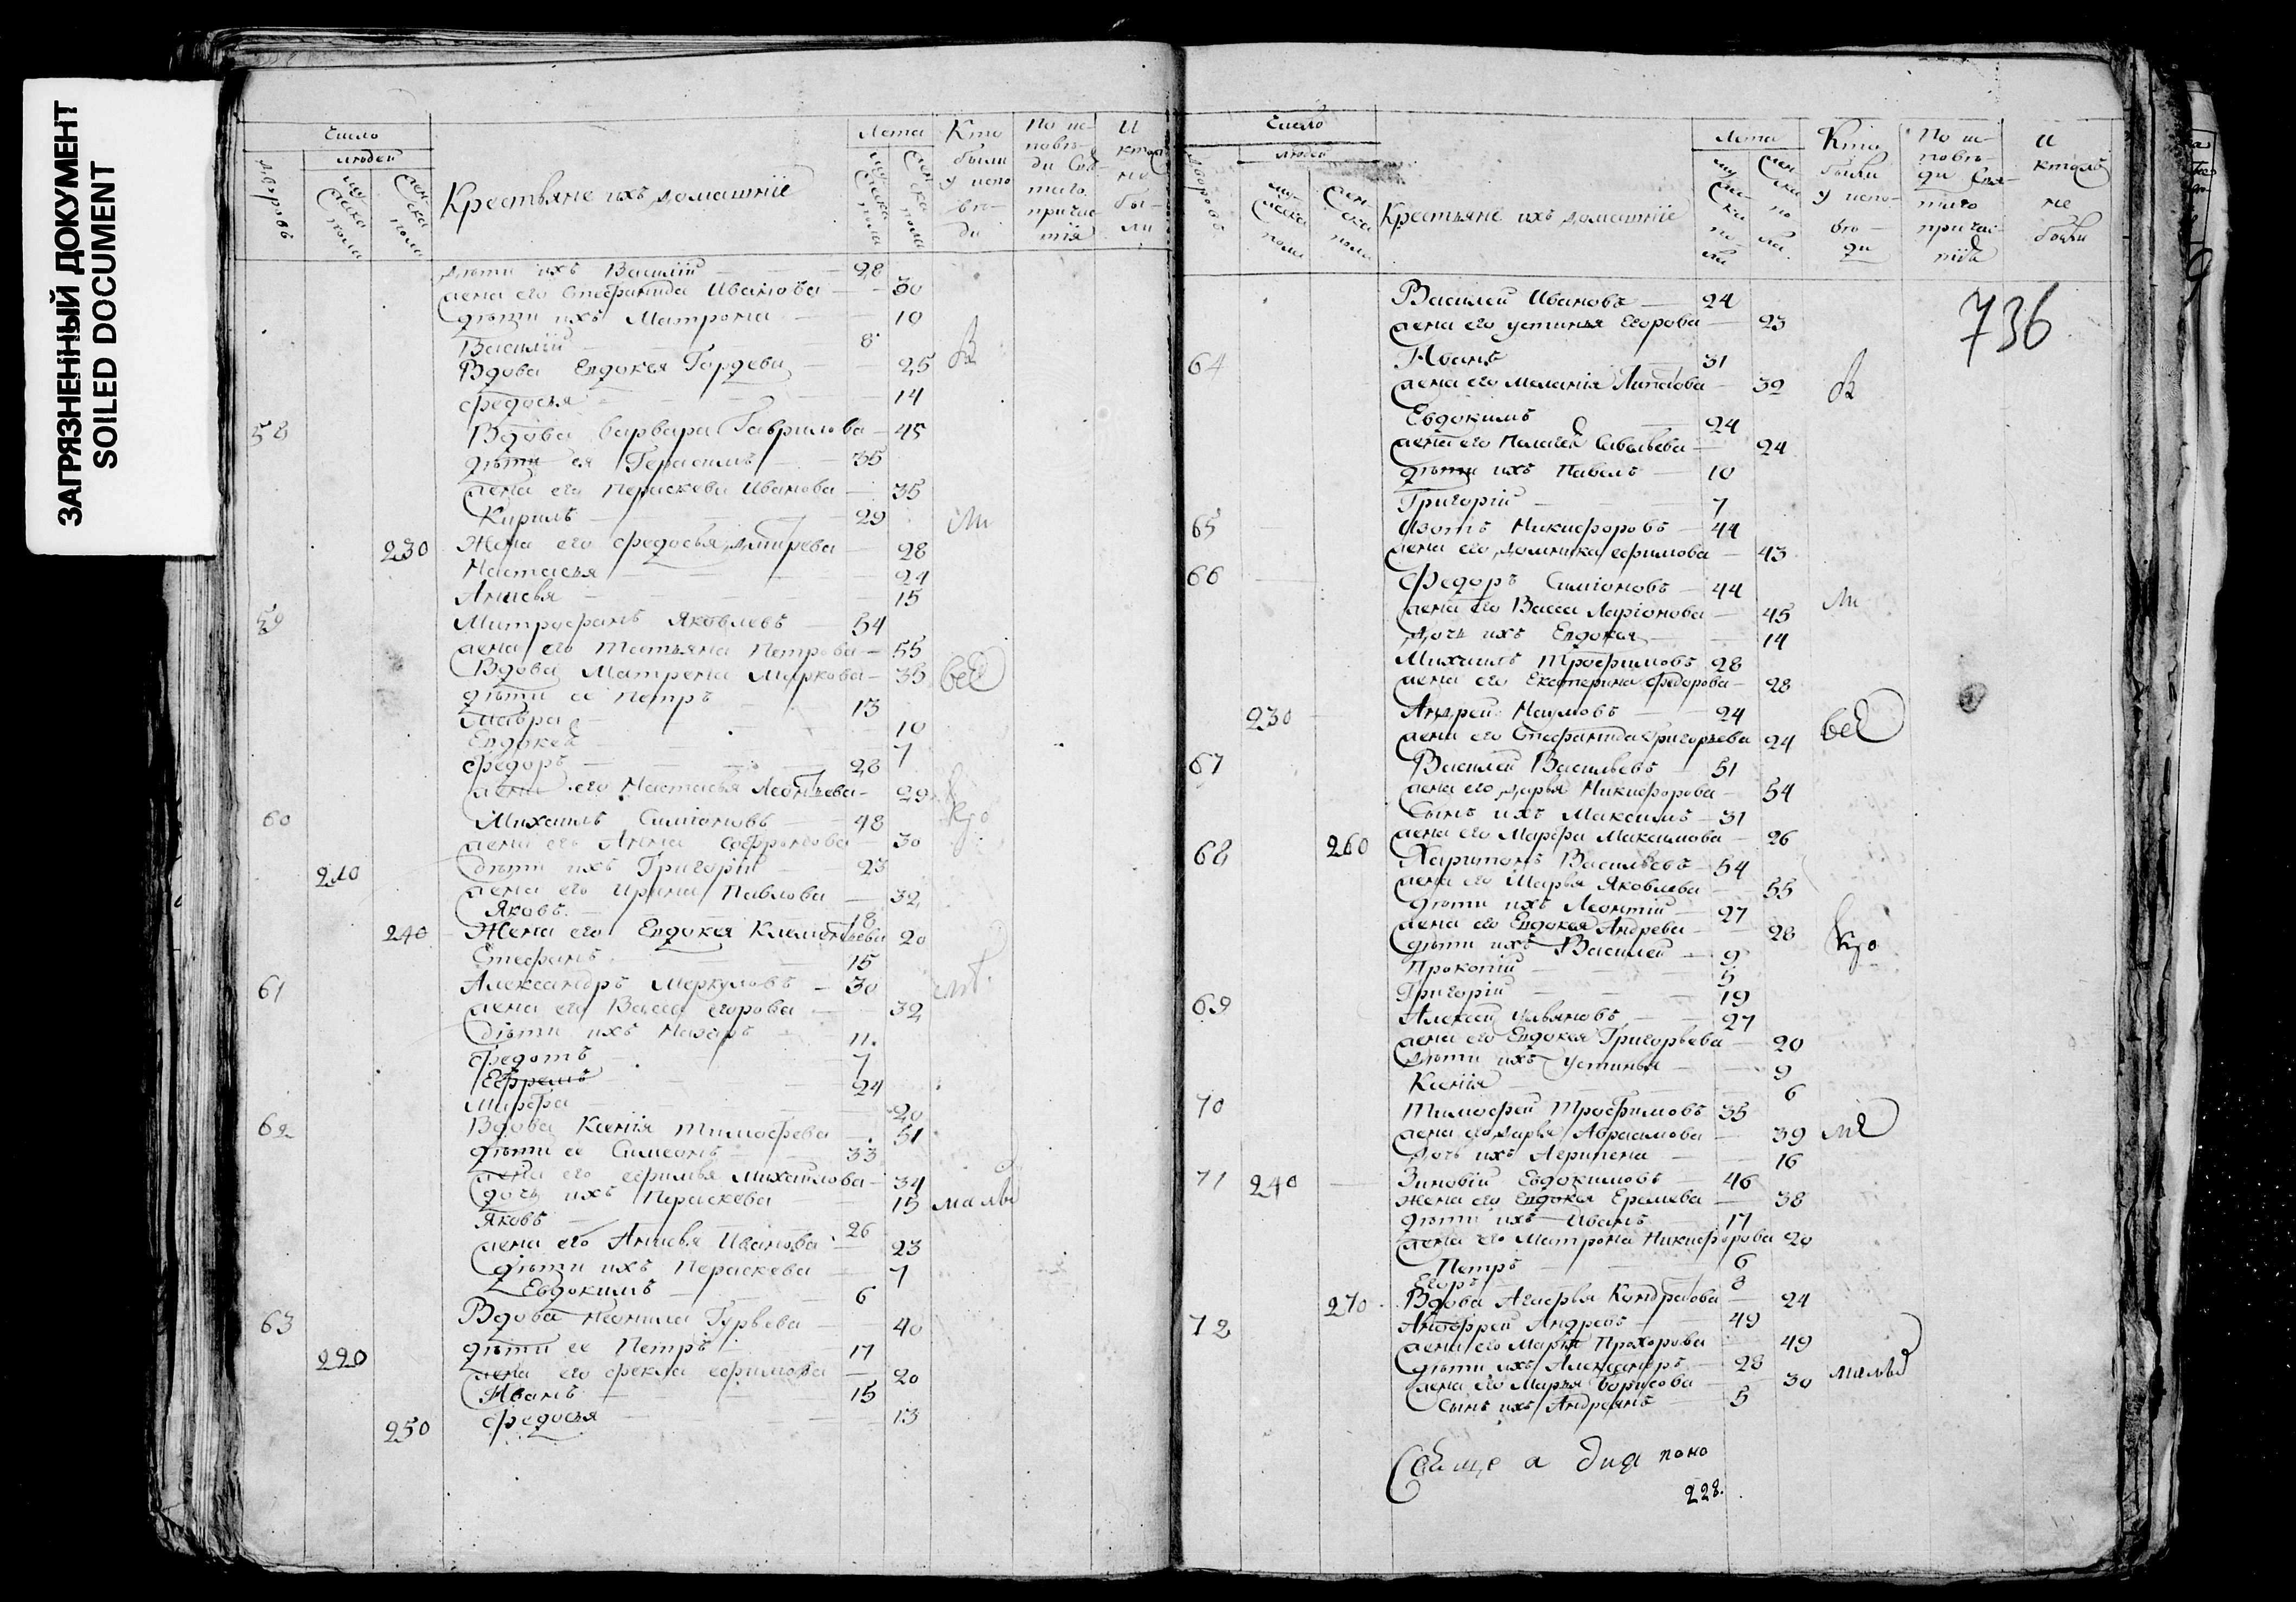 ЗАГРЯЗНЕННЫЙ ДОКУМЕНТ
SOILED DOCUMENT
Число
дворовъ
людей
мужеска пола
женска пола
Крестьяне ихъ домашніе
Лета
мужеска пола
женска пола
Кто были у исповеди
По исповеди Святаго причастія
И кто не были
дѣти ихъ Василій 28
жена его Стефанида Иванова 30
дѣти ихъ Матрона 10
Василій 8
Вдова Евдокея Гордева 25
Федосья 14
58 Вдова Варвара Гаврилова 45
дѣти ея Герасимъ 35
жена его Пераскева Иванова 35
Кирилъ 29
230 Жена его Федосья Дмитрева 28
Настасья 24
Анисья 15
59 Митрофанъ Яковлевъ 54
жена его Татьяна Петрова 55
Вдова Матрена Маркова 35
дѣти ее Петръ 13
Мавра 10
Евдокея 7
Федоръ 28
жена его Настасья Леонтьева 29
60 Михаилъ Симіоновъ 48
жена его Анна Софронова 30
210 дѣти ихъ Григорій 23
жена его Ирина Павлова 32
Яковъ 18
240 Жена его Евдокея Климонтьева 20
Стефанъ 15
61 Александръ Меркуловъ 30
жена его Васса Егорова 32
дѣти ихъ Назаръ 11
Федотъ 7
Ефремъ 24
Марфа 20
62 Вдова Ксенія Тимофева 51
дѣти ее Симеонъ 33
жена его Ефимья Михаилова 34
дочь ихъ Пераскева 15
Яковъ 26
жена его Анисья Иванова 23
дѣти ихъ Пераскева 7
Евдокимъ 6
63 Вдова Неонила Гурьева 40
220 дѣти ее Петръ 17
жена его Фекла Ефимова 20
Иванъ 15
250 Федосья 13
Число
дворовъ
людей
мужеска пола
женска пола
Крестьяне ихъ домашніе
Лета
мужеска пола
женска пола
Кто были у исповеди
По исповеди Святаго причастія
И кто не были
736
Василей Ивановъ 24
жена его Устинья Егорова 23
64 Иванъ 31
жена его Меланія 39
Евдокимъ 24
жена его Пелагея Савельева 24
дѣти ихъ Павелъ 10
Григорій 7
65 Изотъ Никифоровъ 44
жена его Домника Ефимова 43
66 Федоръ Симіоновъ 44
жена его Васса Ларіонова 45
Дочь ихъ Евдокея 14
Михаилъ Трофимовъ 28
жена его Екатерина Федорова 28
230 Андрей Наумовъ 24
жена его Стефанида Григорьева 24
67 Василей Васильевъ 51
жена его Дарья Никифорова 54
Сынъ ихъ Максимъ 31
260 жена его Марфа Максимова 26
68 Харитонъ Васильевъ 54
жена его Марья Яковлева 55
дѣти ихъ Леонтій 27
жена его Евдокея Андрева 28
дѣти ихъ Василей 9
Прокопій 5
Григорій 19
69 Алексей Ульяновъ 27
жена его Евдокея Григорьева 20
дѣти ихъ Устинья 9
Ксенія 6
70 Тимофей Трофимовъ 35
жена его Дарья Абрасимова 39
Дочь ихъ Агрипена 16
71 240 Зиновій Евдокимовъ 46
жена его Евдокея Еремева 38
дѣти ихъ Иванъ 17
жена его Матрона Никифорова 20
Петръ 6
Егоръ 8
270 Вдова Агафья Кондратова 24
72 Андрей Андревъ 49
жена его Марья Прохорова 49
дѣти ихъ Александръ 28
жена его Марья Борисова 30
Сынъ ихъ Андреянъ 5
228.